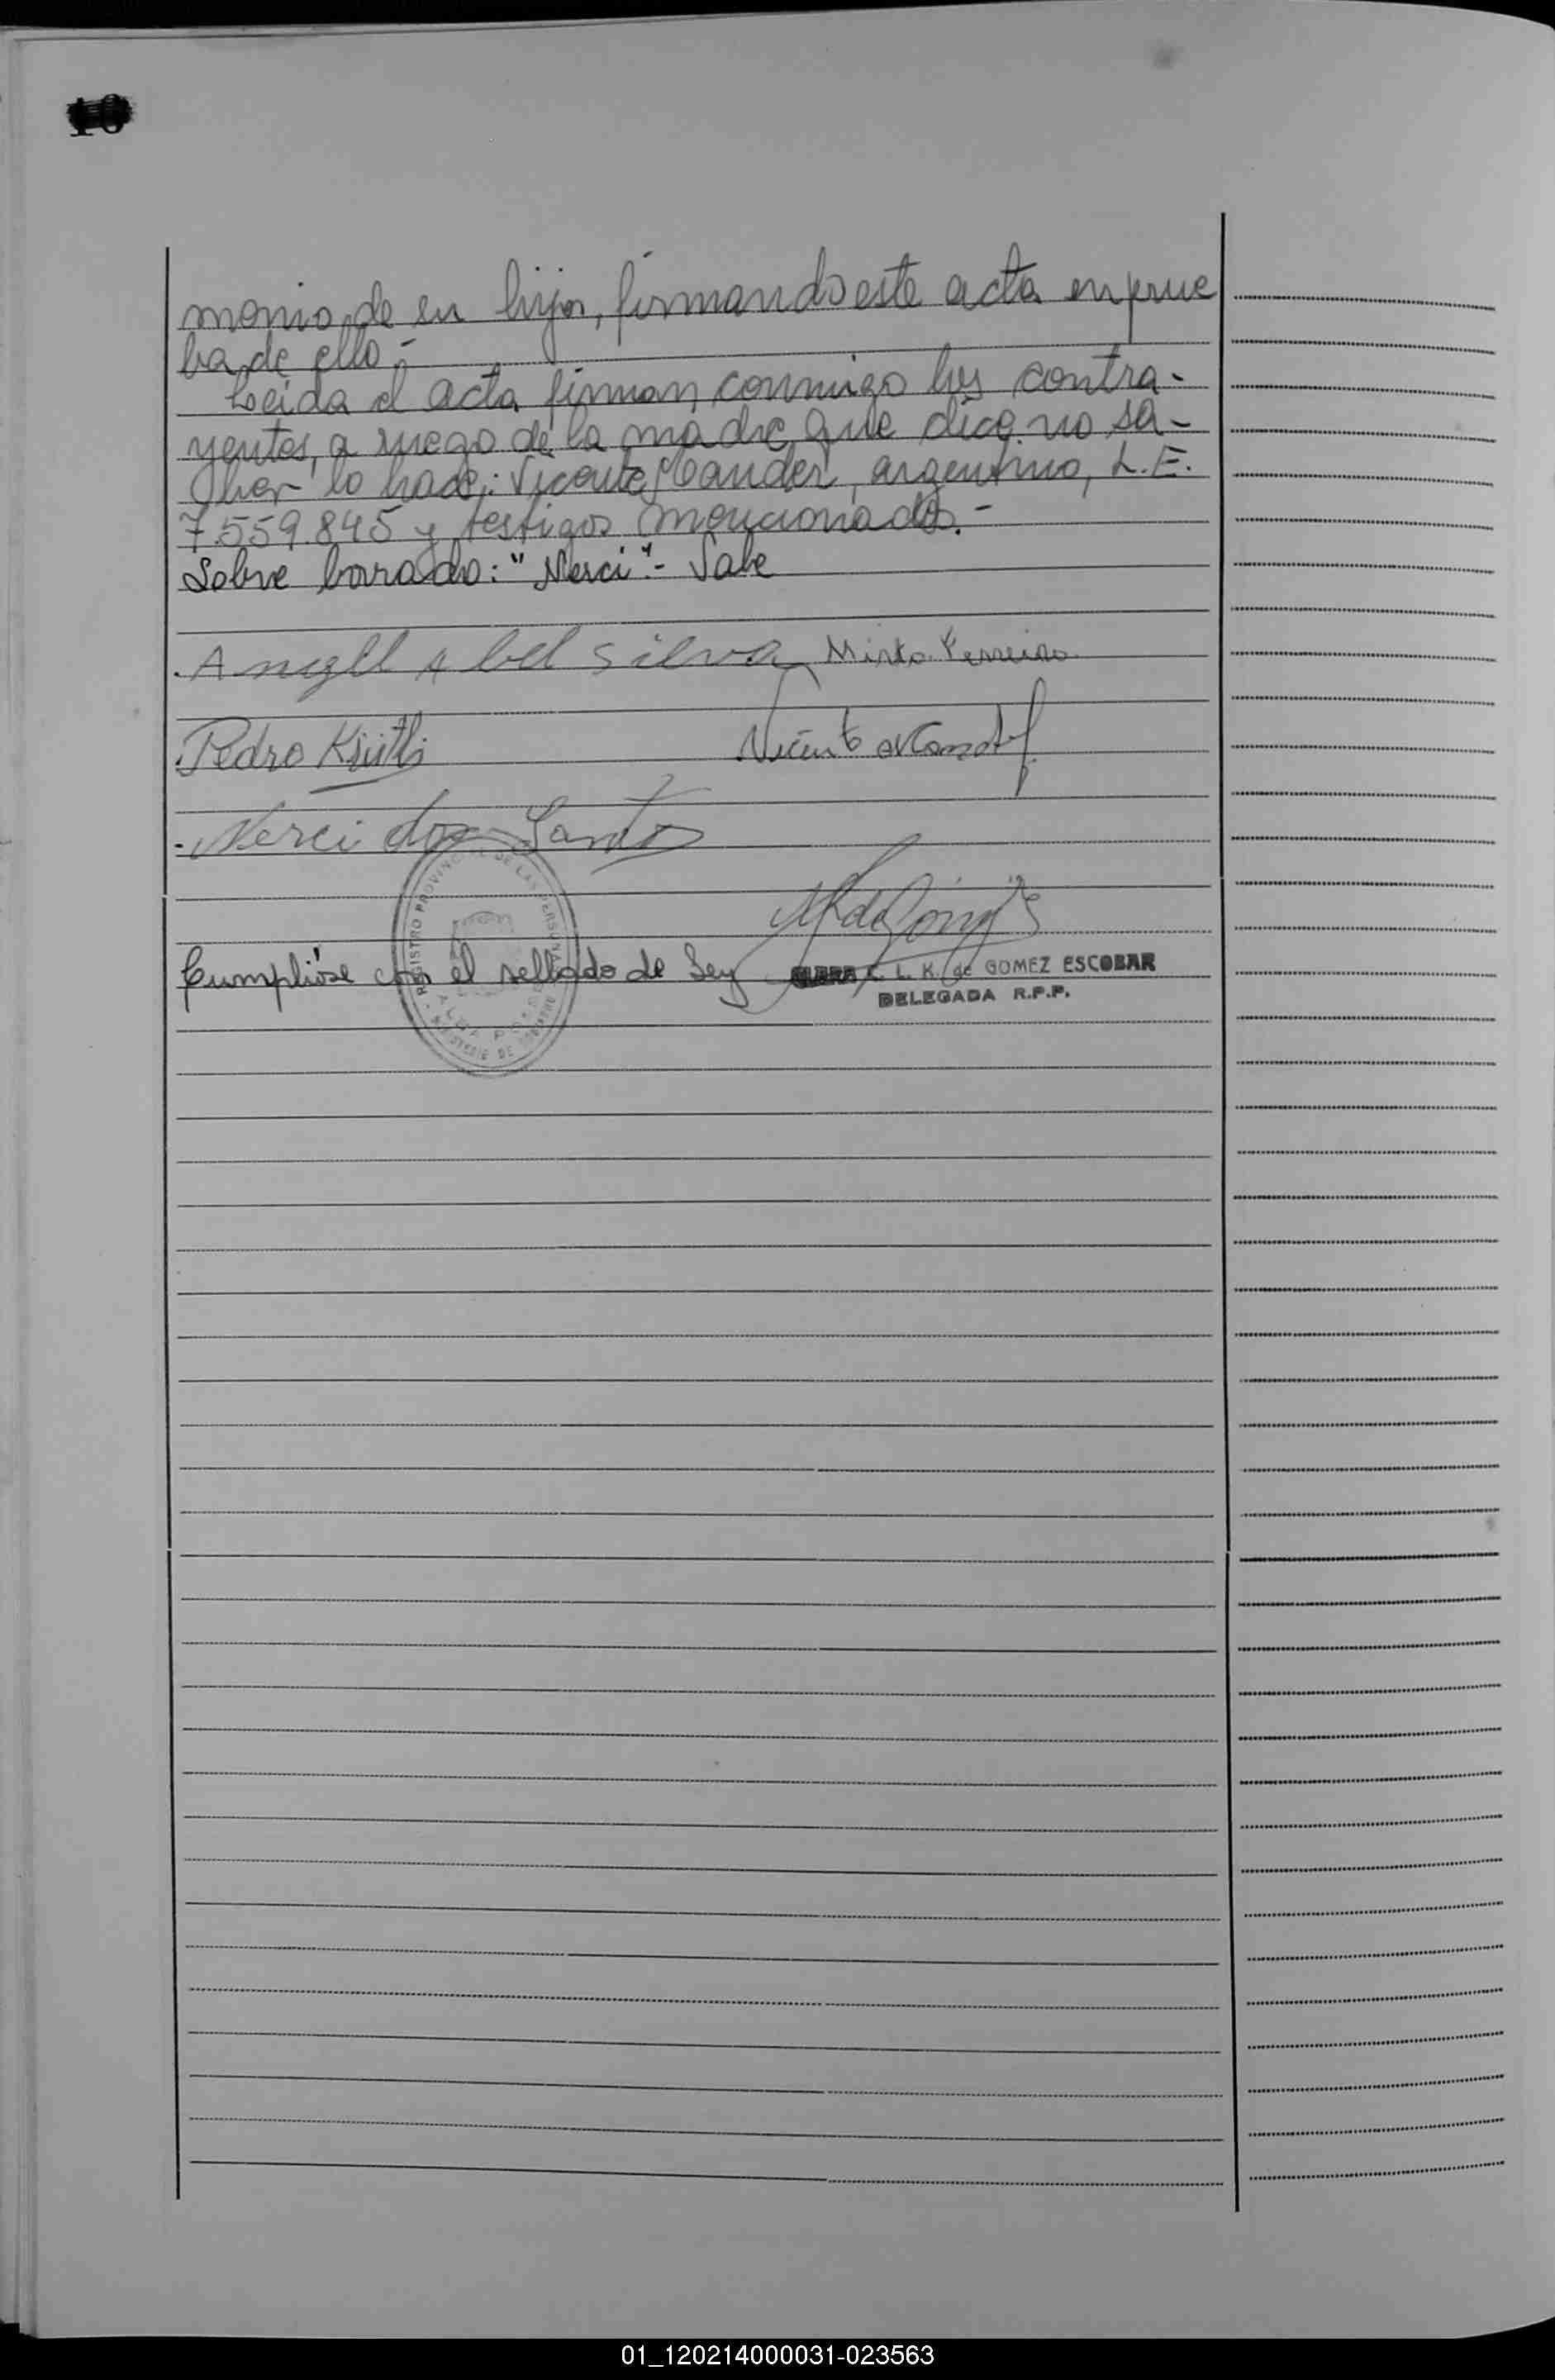 monio de su hija, firmando este acta en prue
ba de ello.-
Leída el acta firman conmigo los contra-
yentes, a ruego de la madre que dice no sa-
ber lo hace: Vicente argentino, L.E.
7.559.845 y testigos mencionados.-
Sobre borrado: "Nerci".- Vale
Angel Abel Silva Mirta Ferreira
Pedro Vicente
Nerci dos Santos
REGISTRO PROVINCIAL DE LAS PERSONAS
Cumplióse con el sellado de Ley
C. L. K. de GOMEZ ESCOBAR
DELEGADA R.P.P.
01_120214000031-023563